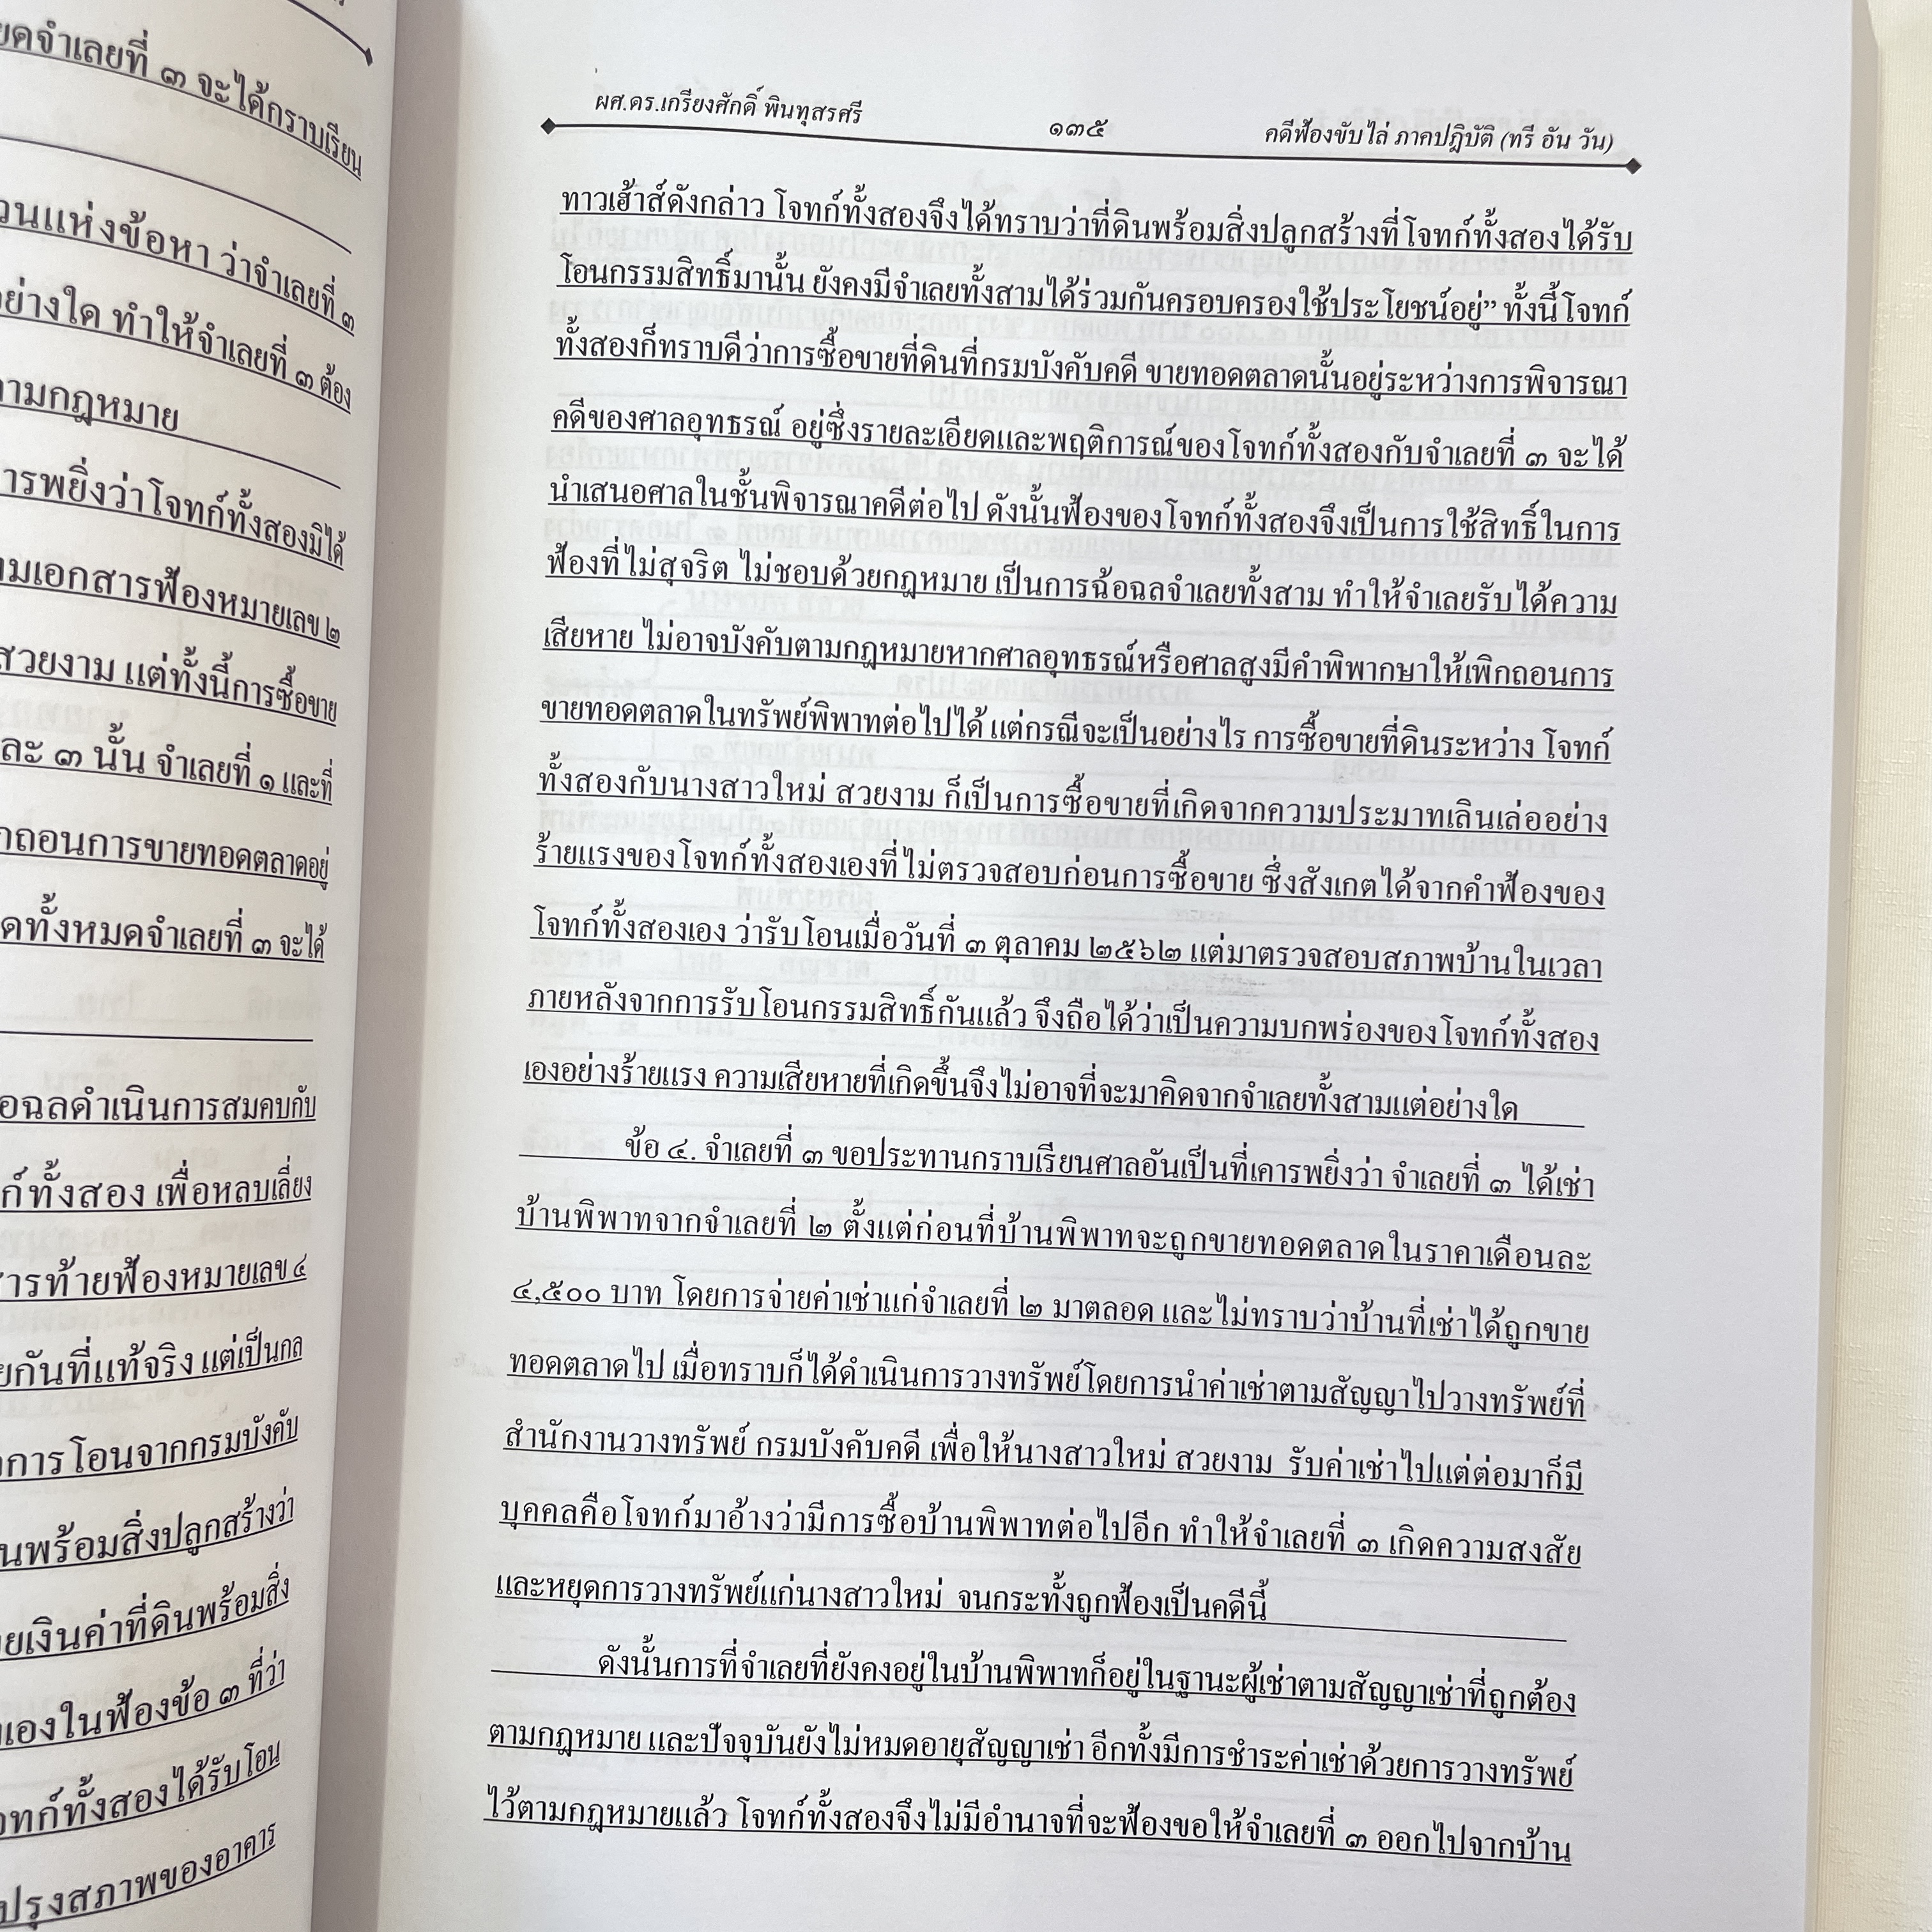 ยดจำเลยที่ ๓ จะได้กราบเรียน
วนแห่งข้อหา ว่าจำเลยที่ ๓
ย่างใด ทำให้จำเลยที่ ๓ ต้อง
ตามกฎหมาย
ารพยิ่งว่าโจทก์ทั้งสองมิได้
ามเอกสารฟ้องหมายเลข ๒
สวยงาม แต่ทั้งนี้การซื้อขาย
ละ ๓ นั้น จำเลยที่ ๑ และที่
กถอนการขายทอดตลาดอยู่
ดทั้งหมดจำเลยที่ ๓ จะได้
อฉลดำเนินการสมคบกับ
ก์ทั้งสอง เพื่อหลบเลี่ยง
ารท้ายฟ้องหมายเลข ๔
ยกันที่แท้จริง แต่เป็นกล
การโอนจากกรมบังคับ
นพร้อมสิ่งปลูกสร้างว่า
ยเงินค่าที่ดินพร้อมสิ่ง
เองในฟ้องข้อ ๓ ที่ว่า
จทก์ทั้งสองได้รับโอน
ปรุงสภาพของอาคาร
ผศ.ดร.เกรียงศักดิ์ พินทุสรศรี ๑๓๕ คดีฟ้องขับไล่ ภาคปฏิบัติ (ทรี อัน วัน)
ทาวเฮ้าส์ดังกล่าว โจทก์ทั้งสองจึงได้ทราบว่าที่ดินพร้อมสิ่งปลูกสร้างที่โจทก์ทั้งสองได้รับ
โอนกรรมสิทธิ์มานั้น ยังคงมีจำเลยทั้งสามได้ร่วมกันครอบครองใช้ประโยชน์อยู่” ทั้งนี้โจทก์
ทั้งสองก็ทราบดีว่าการซื้อขายที่ดินที่กรมบังคับคดี ขายทอดตลาดนั้นอยู่ระหว่างการพิจารณา
คดีของศาลอุทธรณ์ อยู่ซึ่งรายละเอียดและพฤติการณ์ของโจทก์ทั้งสองกับจำเลยที่ ๓ จะได้
นำเสนอศาลในชั้นพิจารณาคดีต่อไป ดังนั้นฟ้องของโจทก์ทั้งสองจึงเป็นการใช้สิทธิ์ในการ
ฟ้องที่ไม่สุจริต ไม่ชอบด้วยกฎหมาย เป็นการฉ้อฉลจำเลยทั้งสาม ทำให้จำเลยรับได้ความ
เสียหาย ไม่อาจบังคับตามกฎหมายหากศาลอุทธรณ์หรือศาลสูงมีคำพิพากษาให้เพิกถอนการ
ขายทอดตลาดในทรัพย์พิพาทต่อไปได้ แต่กรณีจะเป็นอย่างไร การซื้อขายที่ดินระหว่าง โจทก์
ทั้งสองกับนางสาวใหม่ สวยงาม ก็เป็นการซื้อขายที่เกิดจากความประมาทเลินเล่ออย่าง
ร้ายแรงของโจทก์ทั้งสองเองที่ไม่ตรวจสอบก่อนการซื้อขาย ซึ่งสังเกตได้จากคำฟ้องของ
โจทก์ทั้งสองเอง ว่ารับโอนเมื่อวันที่ ๓ ตุลาคม ๒๕๖๒ แต่มาตรวจสอบสภาพบ้านในเวลา
ภายหลังจากการรับโอนกรรมสิทธิ์กันแล้ว จึงถือได้ว่าเป็นความบกพร่องของโจทก์ทั้งสอง
เองอย่างร้ายแรง ความเสียหายที่เกิดขึ้นจึงไม่อาจที่จะมาคิดจากจำเลยทั้งสามแต่อย่างใด
ข้อ ๔. จำเลยที่ ๓ ขอประทานกราบเรียนศาลอันเป็นที่เคารพยิ่งว่า จำเลยที่ ๓ ได้เช่า
บ้านพิพาทจากจำเลยที่ ๒ ตั้งแต่ก่อนที่บ้านพิพาทจะถูกขายทอดตลาดในราคาเดือนละ
๔,๕๐๐ บาท โดยการจ่ายค่าเช่าแก่จำเลยที่ ๒ มาตลอด และไม่ทราบว่าบ้านที่เช่าได้ถูกขาย
ทอดตลาดไป เมื่อทราบก็ได้ดำเนินการวางทรัพย์โดยการนำค่าเช่าตามสัญญาไปวางทรัพย์ที่
สำนักงานวางทรัพย์ กรมบังคับคดี เพื่อให้นางสาวใหม่ สวยงาม รับค่าเช่าไปแต่ต่อมาก็มี
บุคคลคือโจทก์มาอ้างว่ามีการซื้อบ้านพิพาทต่อไปอีก ทำให้จำเลยที่ ๓ เกิดความสงสัย
และหยุดการวางทรัพย์แก่นางสาวใหม่ จนกระทั้งถูกฟ้องเป็นคดีนี้
ดังนั้นการที่จำเลยที่ยังคงอยู่ในบ้านพิพาทก็อยู่ในฐานะผู้เช่าตามสัญญาเช่าที่ถูกต้อง
ตามกฎหมาย และปัจจุบันยังไม่หมดอายุสัญญาเช่า อีกทั้งมีการชำระค่าเช่าด้วยการวางทรัพย์
ไว้ตามกฎหมายแล้ว โจทก์ทั้งสองจึงไม่มีอำนาจที่จะฟ้องขอให้จำเลยที่ ๓ ออกไปจากบ้าน